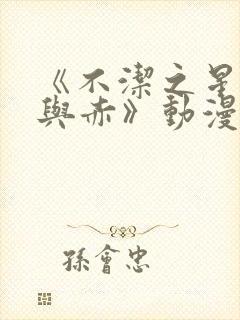 《不潔之星
與赤》動漫
孫會忠